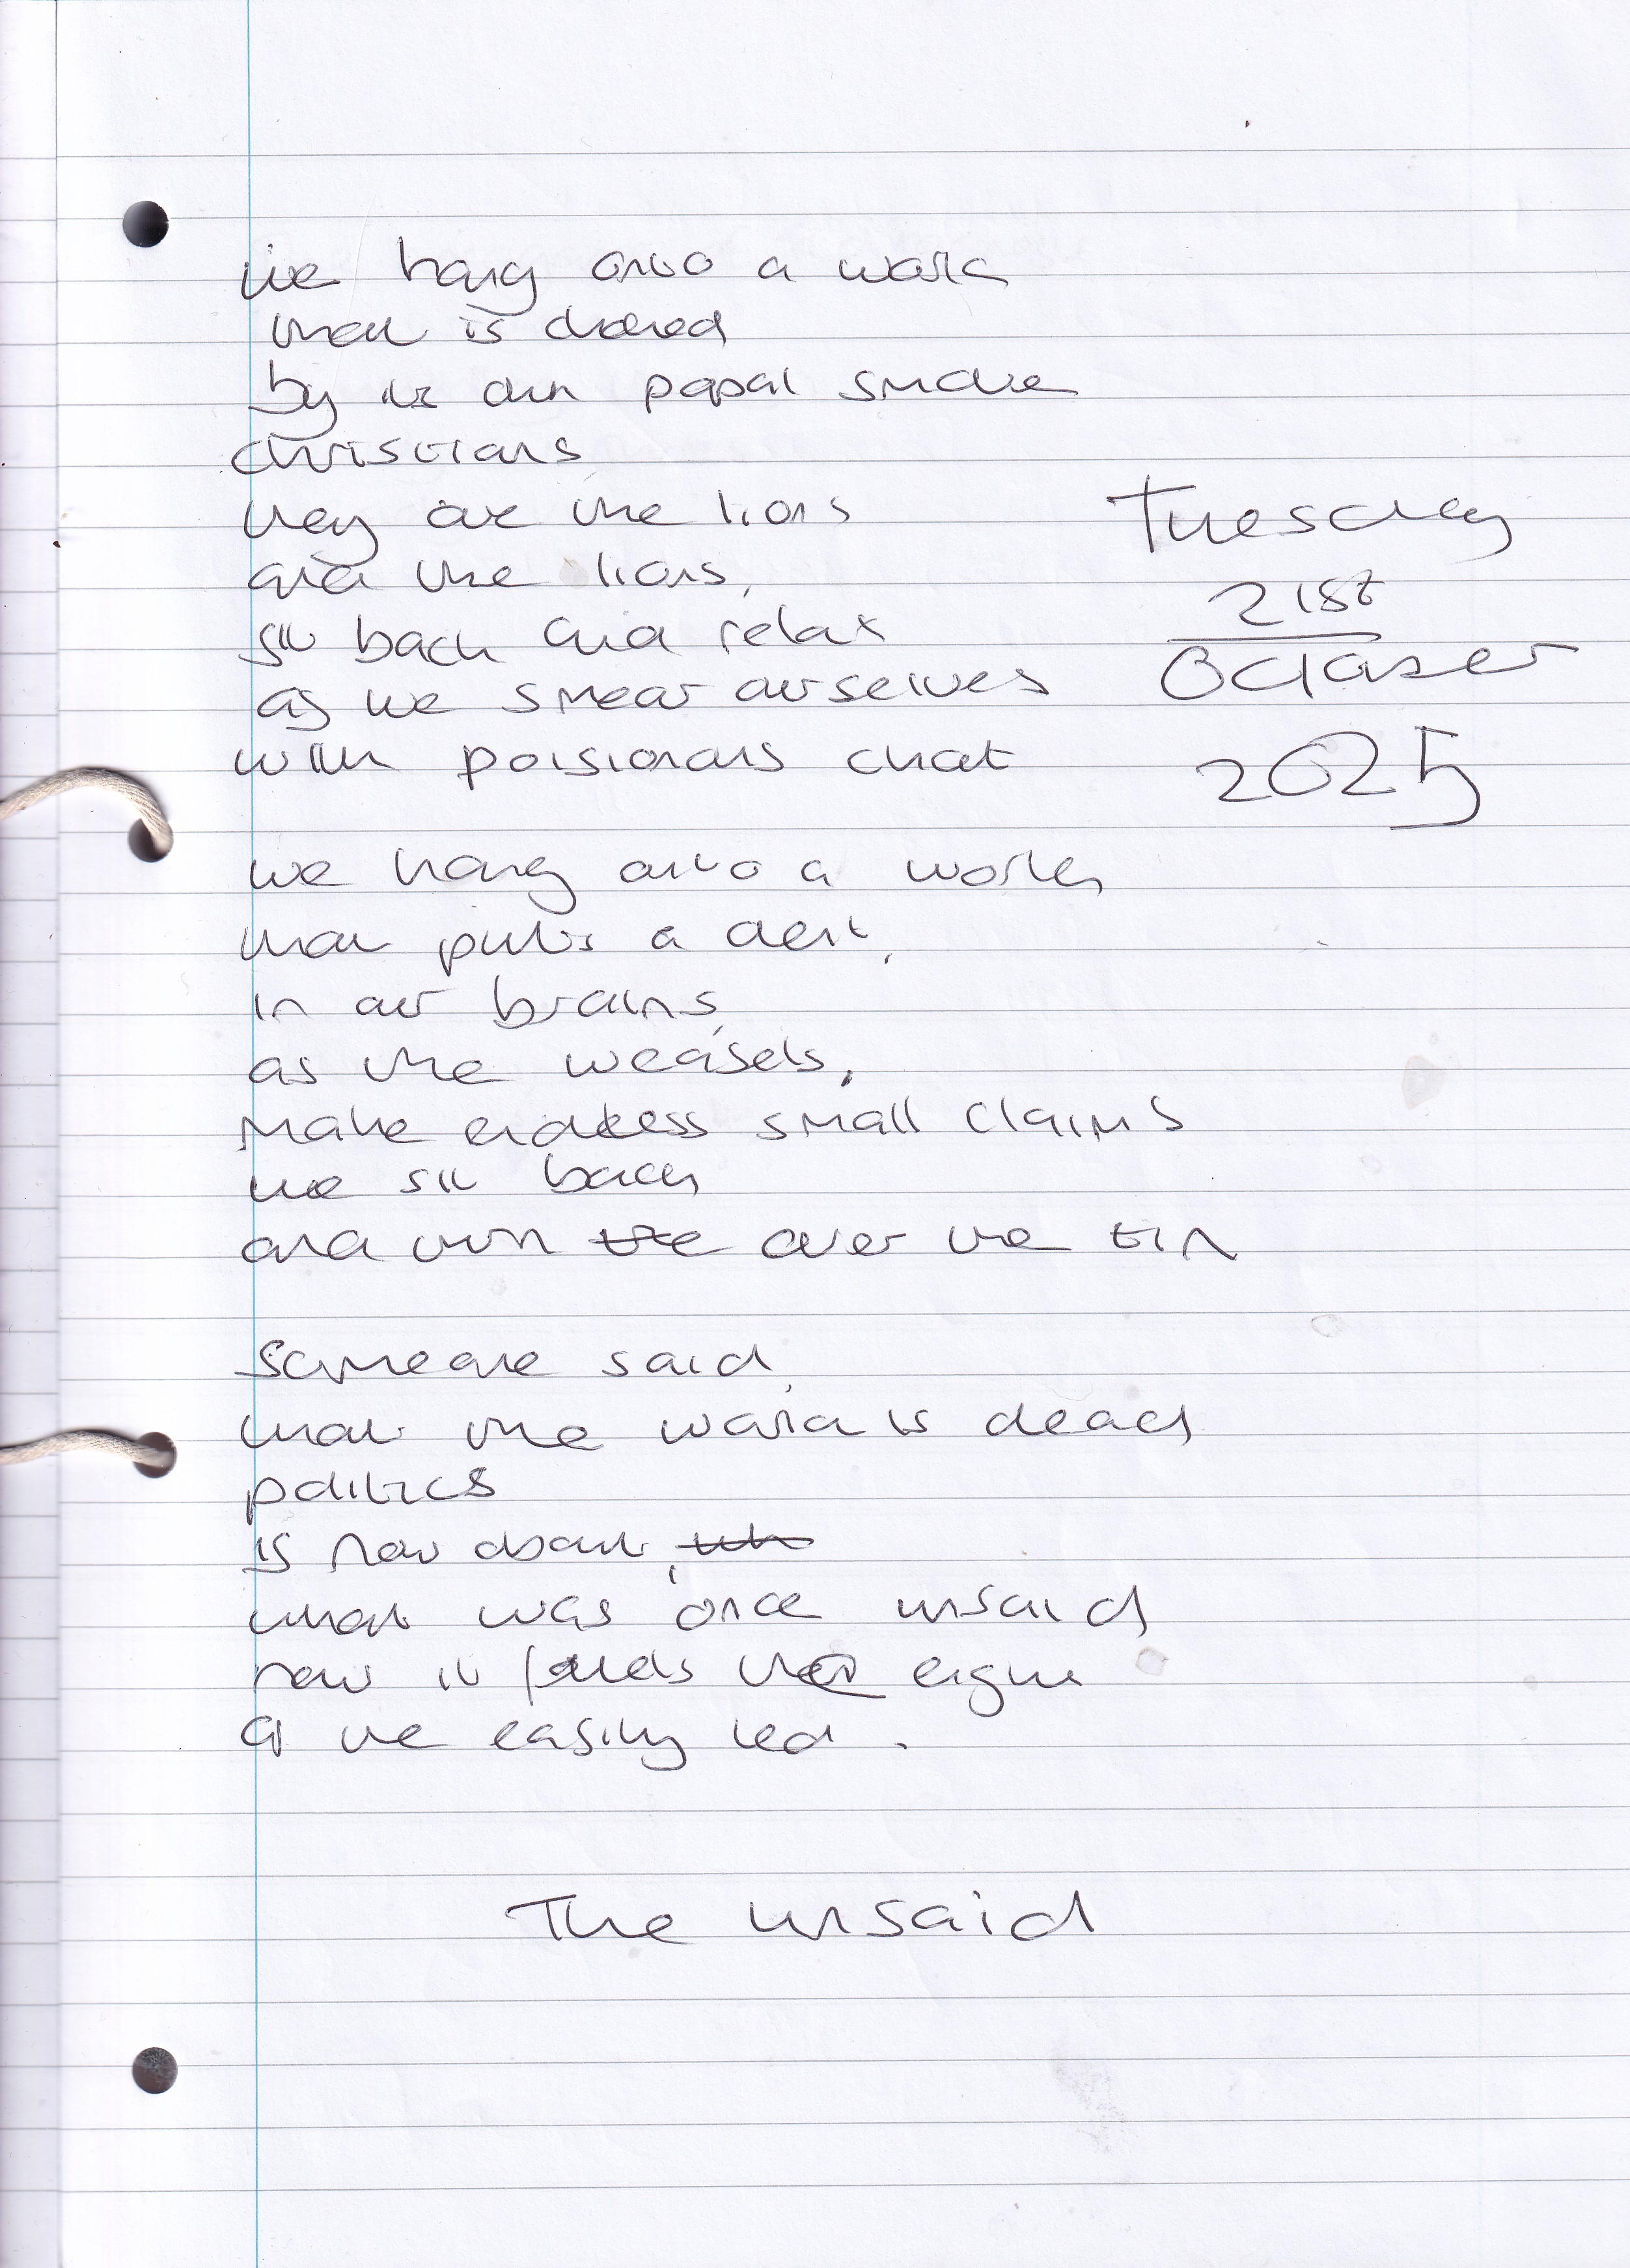 we hang onto a world
that is choked
by its own papal smoke
christians
they are the lions
and the lions,
sit back and relax
as we smear ourselves
with poisionous chat
Tuesday
21st
October
2025
we hang onto a world
that puts a dent,
in our brains,
as the weasels,
make endless small claims
we sit back
and win the over the
Someone said,
that the world is dead
politics
is now about,
what was once unsaid
now it feeds the
of the easily led.
The unsaid